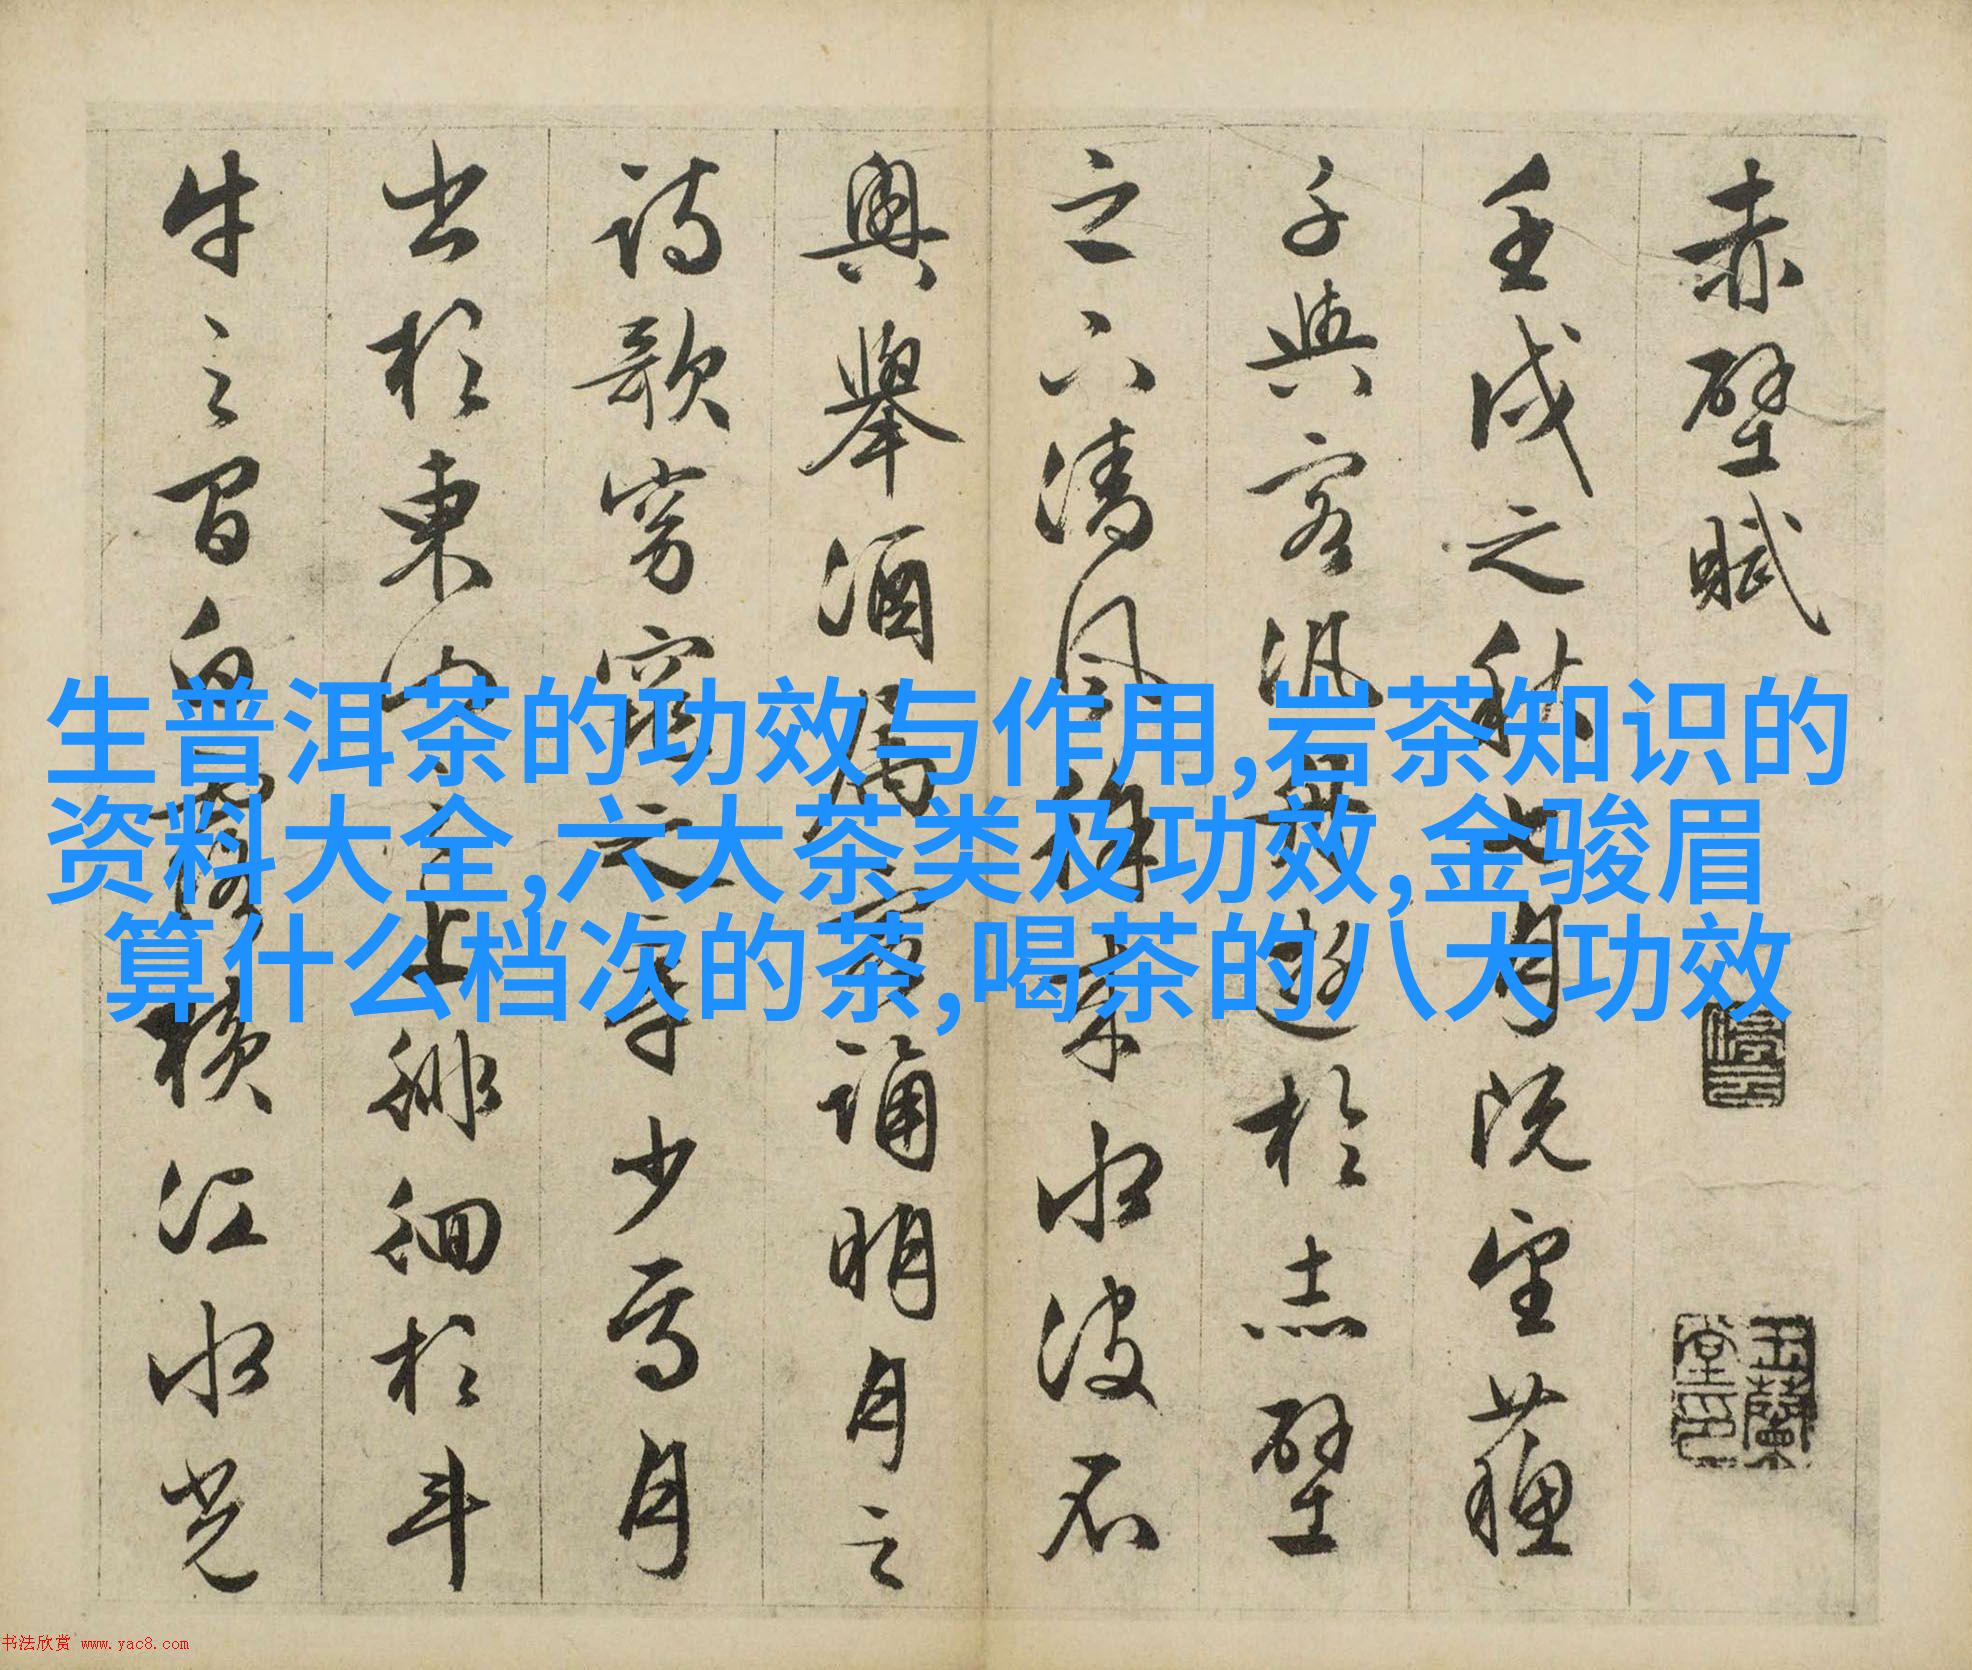 赤壁賦
壬戌之秋七月既望蘇
子與客汎舟遊於赤壁
之下清風徐來水波不
興舉酒屬客誦明月之
詩歌窈窕之章少焉月
出於東山之上徘徊於斗
牛之間白露橫江水光
停云
玉蘭堂印
生普洱茶的功效与作用,岩茶知识的
资料大全,六大茶类及功效,金骏眉
算什么档次的茶,喝茶的八大功效
书法欣赏 www.yac8.com